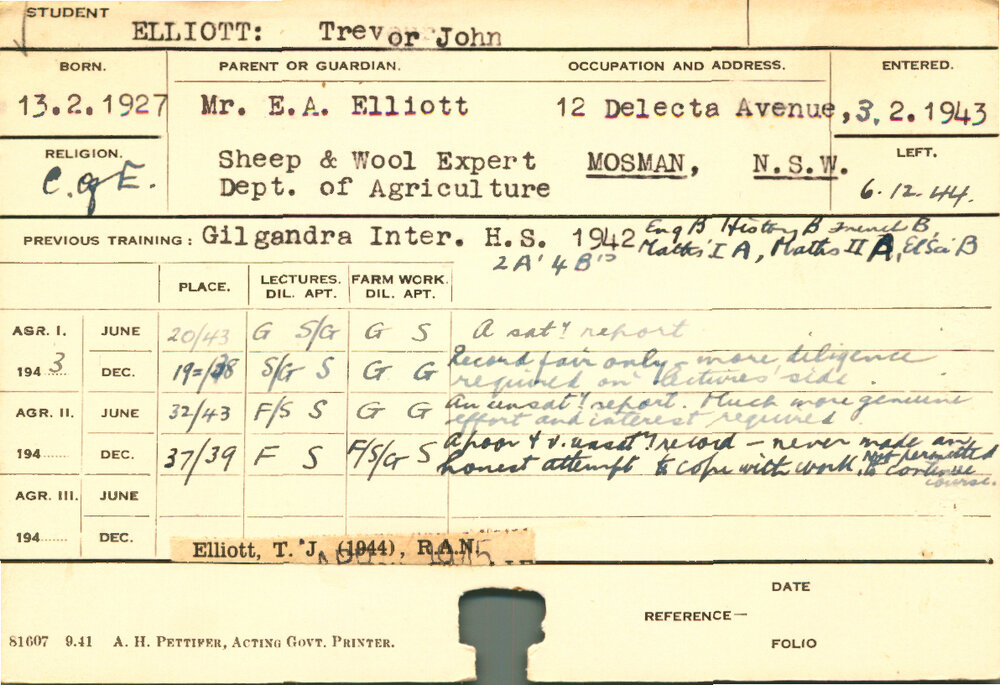 STUDENT
ELLIOTT: Trevor John
BORN. PARENT OR GUARDIAN. OCCUPATION AND ADDRESS. ENTERED.
13.2.1927 Mr. E.A. Elliott 12 Delecta Avenue, 3.2.1943
RELIGION. Sheep & Wool Expert MOSMAN, N.S.W. LEFT.
C. of E. Dept. of Agriculture 6.12.44.
PREVIOUS TRAINING: Gilgandra Inter. H.S. 1942 Eng B History B French B,
2 A's 4 B's Maths I A, Maths II A, El Sci B
PLACE. LECTURES. FARM WORK.
DIL. APT. DIL. APT.
AGR. I. JUNE 20/43 G S/G G S A saty report
194 3 DEC. 19=/38 S/G S G G Record fair only - more diligence
required on lectures' side.
AGR. II. JUNE 32/43 F/S S G G An unsaty report. Much more genuine
effort and interest required.
194 DEC. 37/39 F S F/S/G S A poor & v. unsaty record - never made an
honest attempt to cope with work. Not permitted
to continue
course.
AGR. III. JUNE
194 DEC.
Elliott, T. J. (1944), R.A.N.
DATE
REFERENCE—
FOLIO
81607 9.41 A. H. PETTIFER, ACTING GOVT. PRINTER.